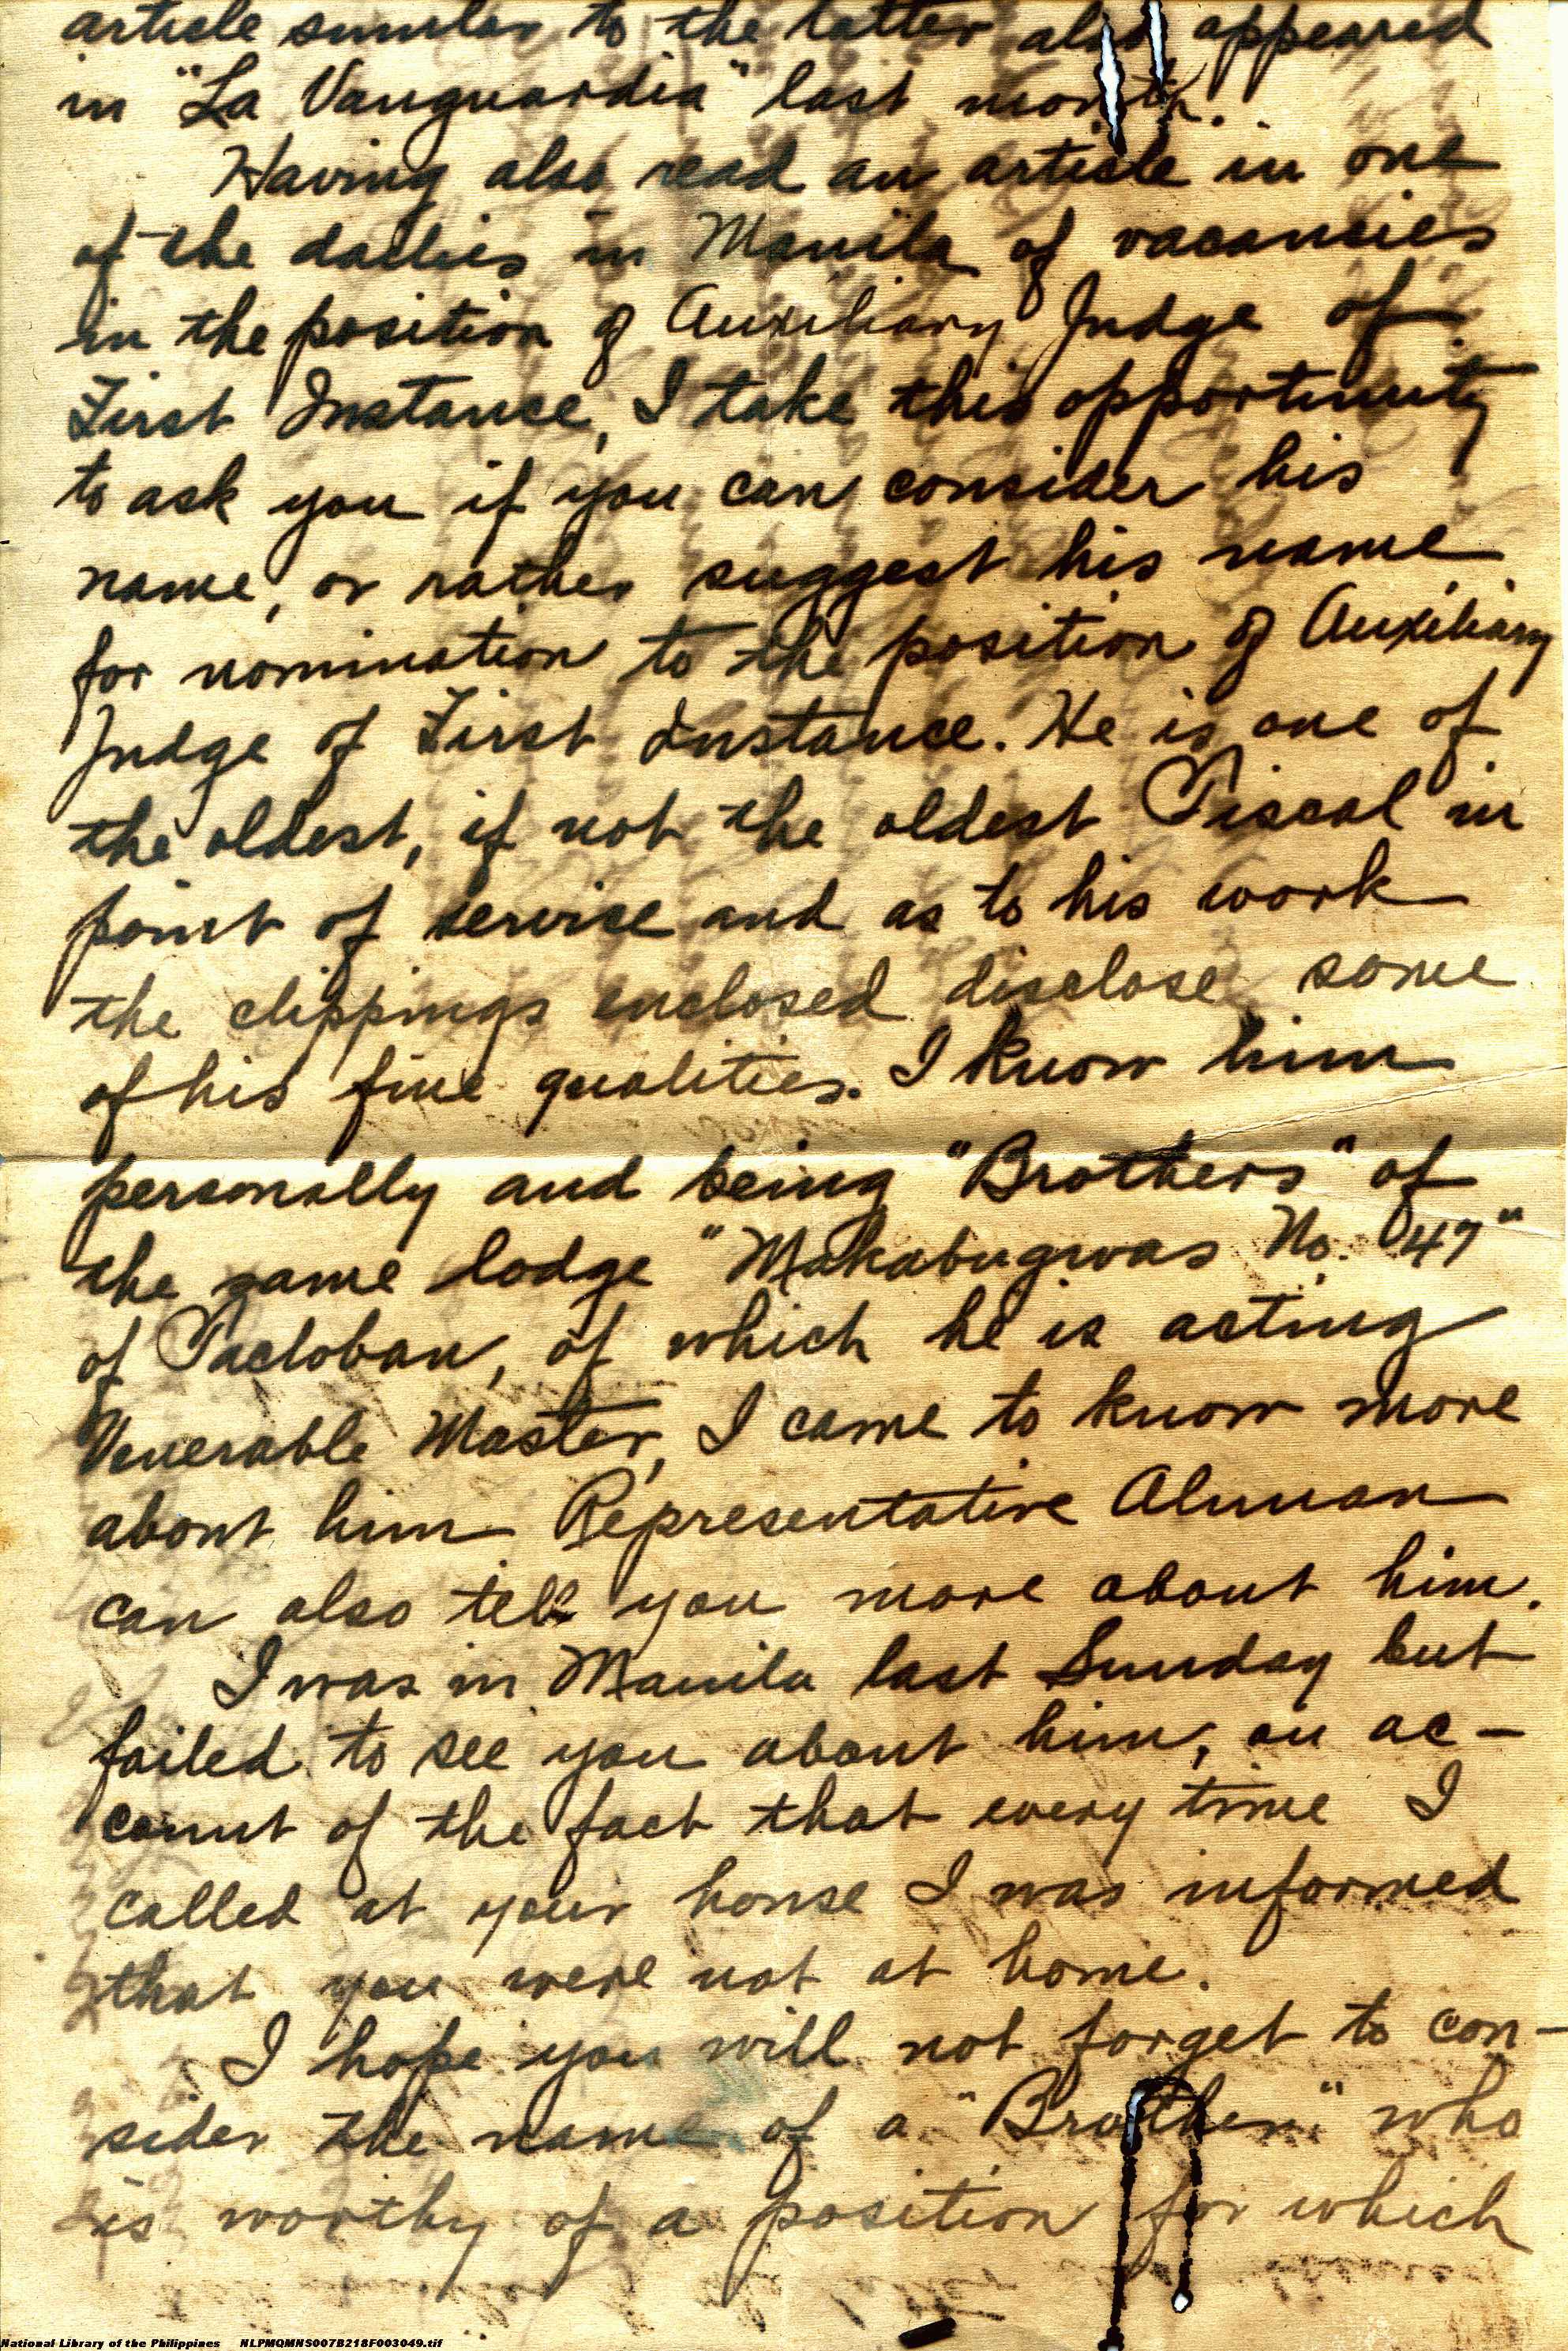 article similar to the latter also appeared
in "La Vanguardia" last month.
Having also read an article in one
of the dailies in Manila of vacancies
in the position of Auxiliary Judge of
First Instance, I take this opportunity
to ask you if you can consider his
name, or rather suggest his name
for nomination to the position of Auxiliary
Judge of First Instance. He is one of
the oldest, if not the oldest Fiscal in
point of service and as to his work
the clippings enclosed disclose some
of his fine qualities. I know him
personally and being "Brothers" of
the same lodge "Makabugwas No. 47"
of Tacloban, of which he is acting
Venerable Master, I came to know more
about him Representative
can also tell you more about him.
I was in Manila last Sunday but
failed to see you about him, on ac-
count of the fact that every time I
called at your house I was informed
that you were not at home.
I hope you will not forget to con-
sider the name of a "Brother" who
is worthy of a position for which
National Library of the Philippines NLPMQMNS007B218F003049.tif